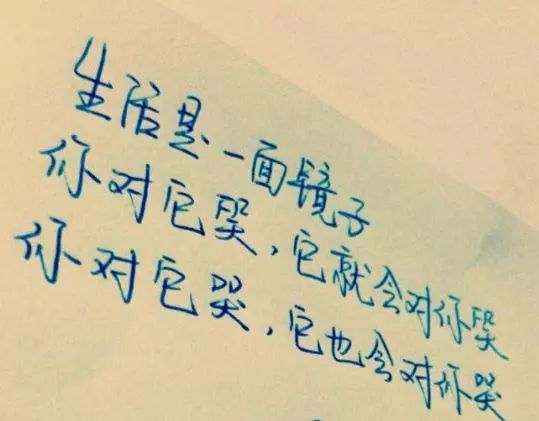 生活是一面镜子
你对它哭，它就会对你哭
你对它哭，它也会对你哭